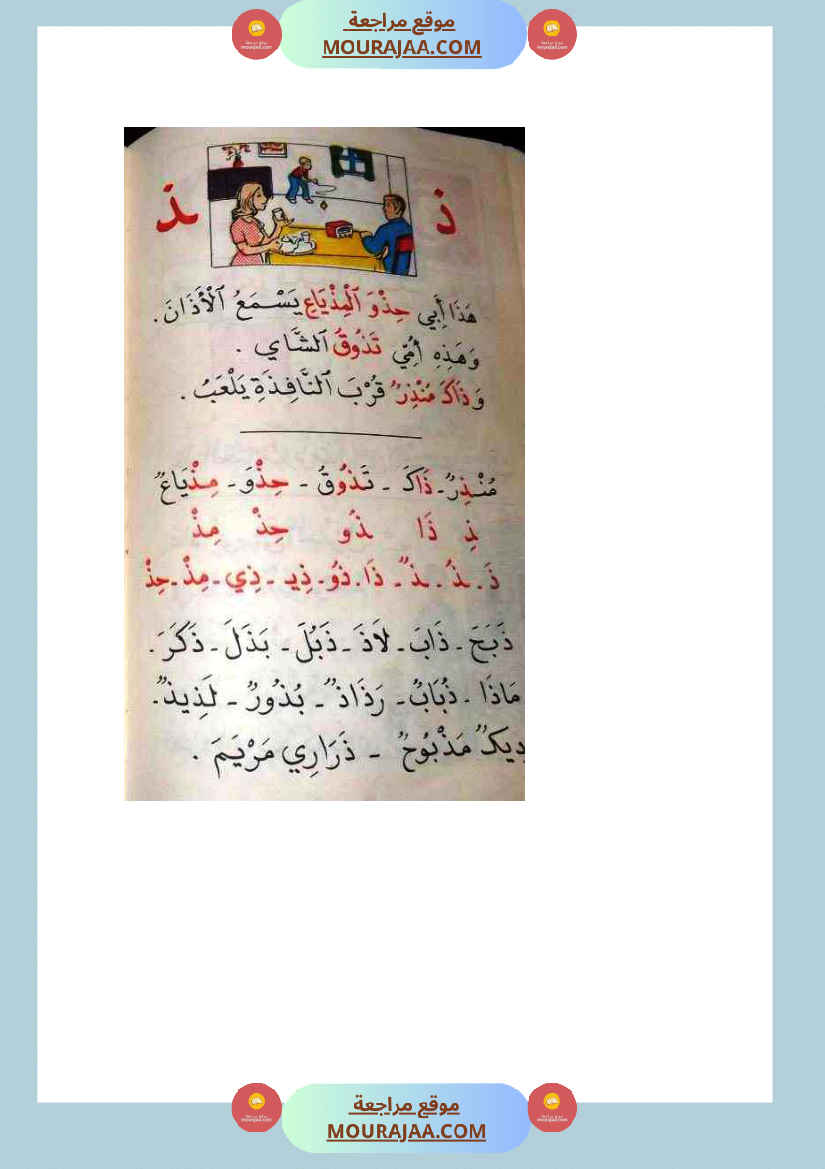 موقع مراجعة
MOURAJAA.COM
ذ ـذ
هَذَا أَبِي حِذْوَ ٱلْمِذْيَاعِ يَسْمَعُ ٱلْأَذَانَ.
وَهَذِهِ أُمِّي تَذُوقُ ٱلشَّايَ .
وَذَاكَ مُنْذِرٌ قُرْبَ ٱلنَّافِذَةِ يَلْعَبُ .
مُنْذِرٌ - ذَاكَ - تَذُوقُ - حِذْوَ - مِذْيَاعٌ
ذِ ذَا ذُو حِذْ مِذْ
ذَ - ذُ - ذٌ - ذَا - ذُو - ذِيـ - ذِي - مِذْ - حِذْ
ذَبَحَ - ذَابَ - لَاذَ - ذَبُلَ - بَذَلَ - ذَكَرَ.
مَاذَا - ذُبَابٌ - رَذَاذٌ - بُذُورٌ - لَذِيذٌ.
دِيكٌ مَذْبُوحٌ - ذَرَارِي مَرْيَمَ .
موقع مراجعة
MOURAJAA.COM